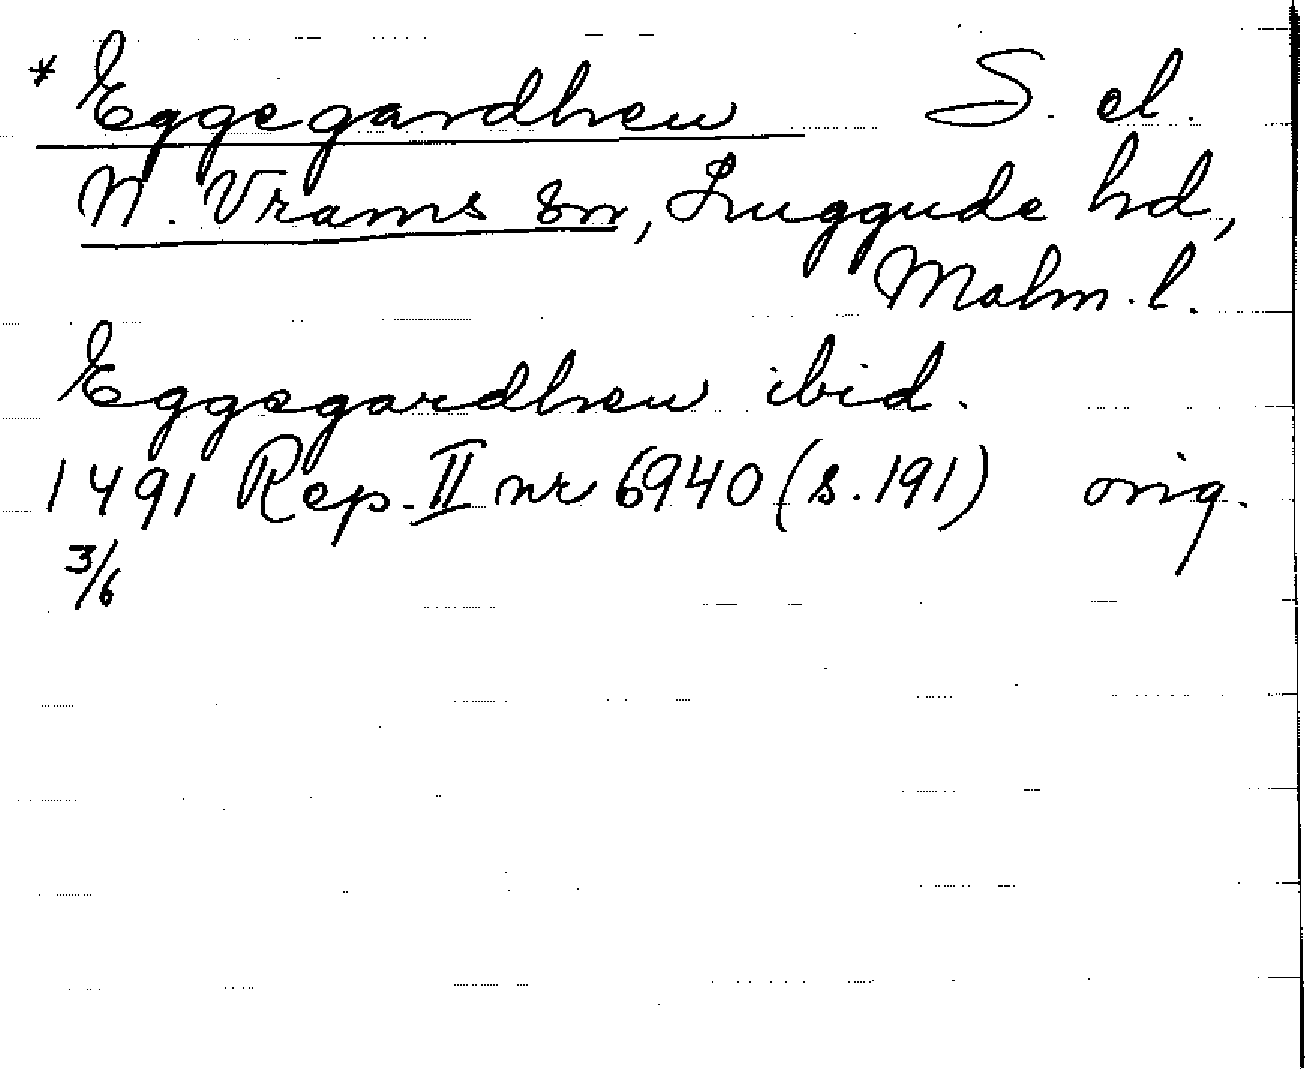 * Eggegardhen S. el.
N. Vrams sn, Luggude hd,
Malm. l.
Eggegardhen ibid.
1491 Rep. II nr 6940 (s. 191) orig.
3/6